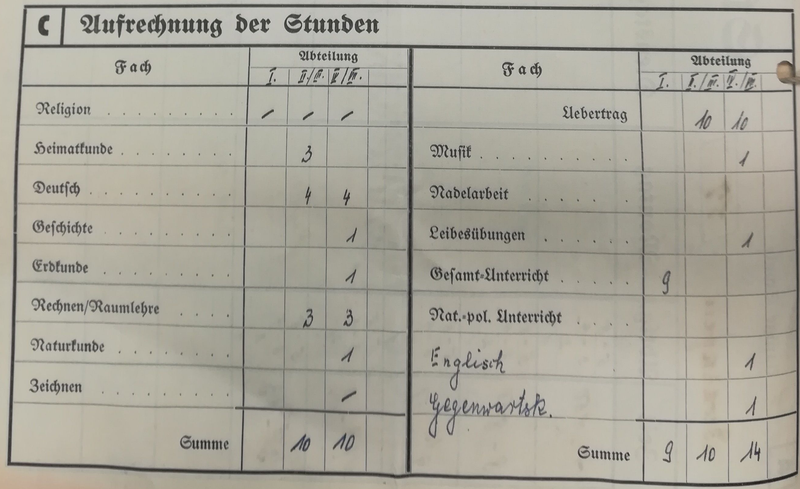 C Aufrechnung der Stunden
Fach Abteilung
I. II./III. IV./VII.
Religion . . . . . . . . . . – – –
Heimatkunde . . . . . . . . 3
Deutsch . . . . . . . . . . 4 4
Geschichte . . . . . . . . . 1
Erdkunde . . . . . . . . . 1
Rechnen/Raumlehre . . . . . 3 3
Naturkunde . . . . . . . . 1
Zeichnen . . . . . . . . . –
Summe 10 10
Fach Abteilung
I. II./III. IV./VII.
Uebertrag 10 10
Musik . . . . . . . . . . 1
Nadelarbeit . . . . . . .
Leibesübungen . . . . . . 1
Gesamt-Unterricht . . . . . 9
Nat.-pol. Unterricht . . . .
Englisch 1
Gegenwartsk. 1
Summe 9 10 14